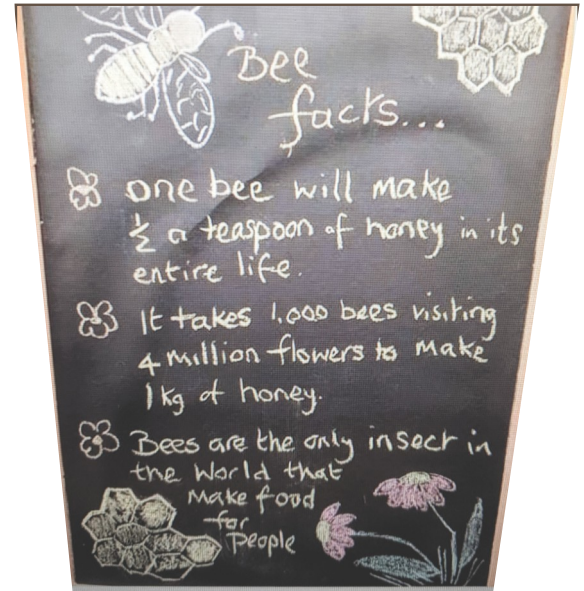 Bee
facts...
one bee will make
½ a teaspoon of honey in its
entire life.
It takes 1,000 bees visiting
4 million flowers to make
1kg of honey.
Bees are the only insect in
the World that
Make food
for
People